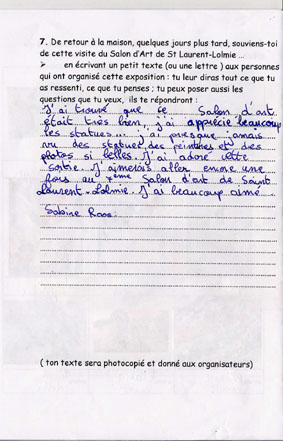 7. De retour à la maison, quelques jours plus tard, souviens-toi
de cette visite du Salon d'Art de St Laurent-Lolmie ...
➢ en écrivant un petit texte (ou une lettre ) aux personnes
qui ont organisé cette exposition : tu leur diras tout ce que tu
as ressenti, ce que tu penses ; tu peux poser aussi les
questions que tu veux, ils te répondront :
J'ai trouvé que ce Salon d'art
était très bien, j'ai apprécié beaucoup
les statues... j'ai presque jamais
vu des statues, des peintres et des
photos si belles. J'ai adoré cette
sortie. J'aimerais aller encore une
fois au ème Salon d'art de Saint
Laurent-Lolmie. J'ai beaucoup aimé
Sabine Roos.
( ton texte sera photocopié et donné aux organisateurs)